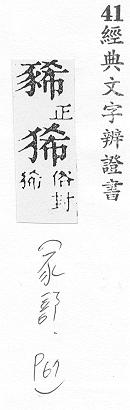 41經典文字辨證書
豨正
狶俗封
𤝻
(豕部.
P61)